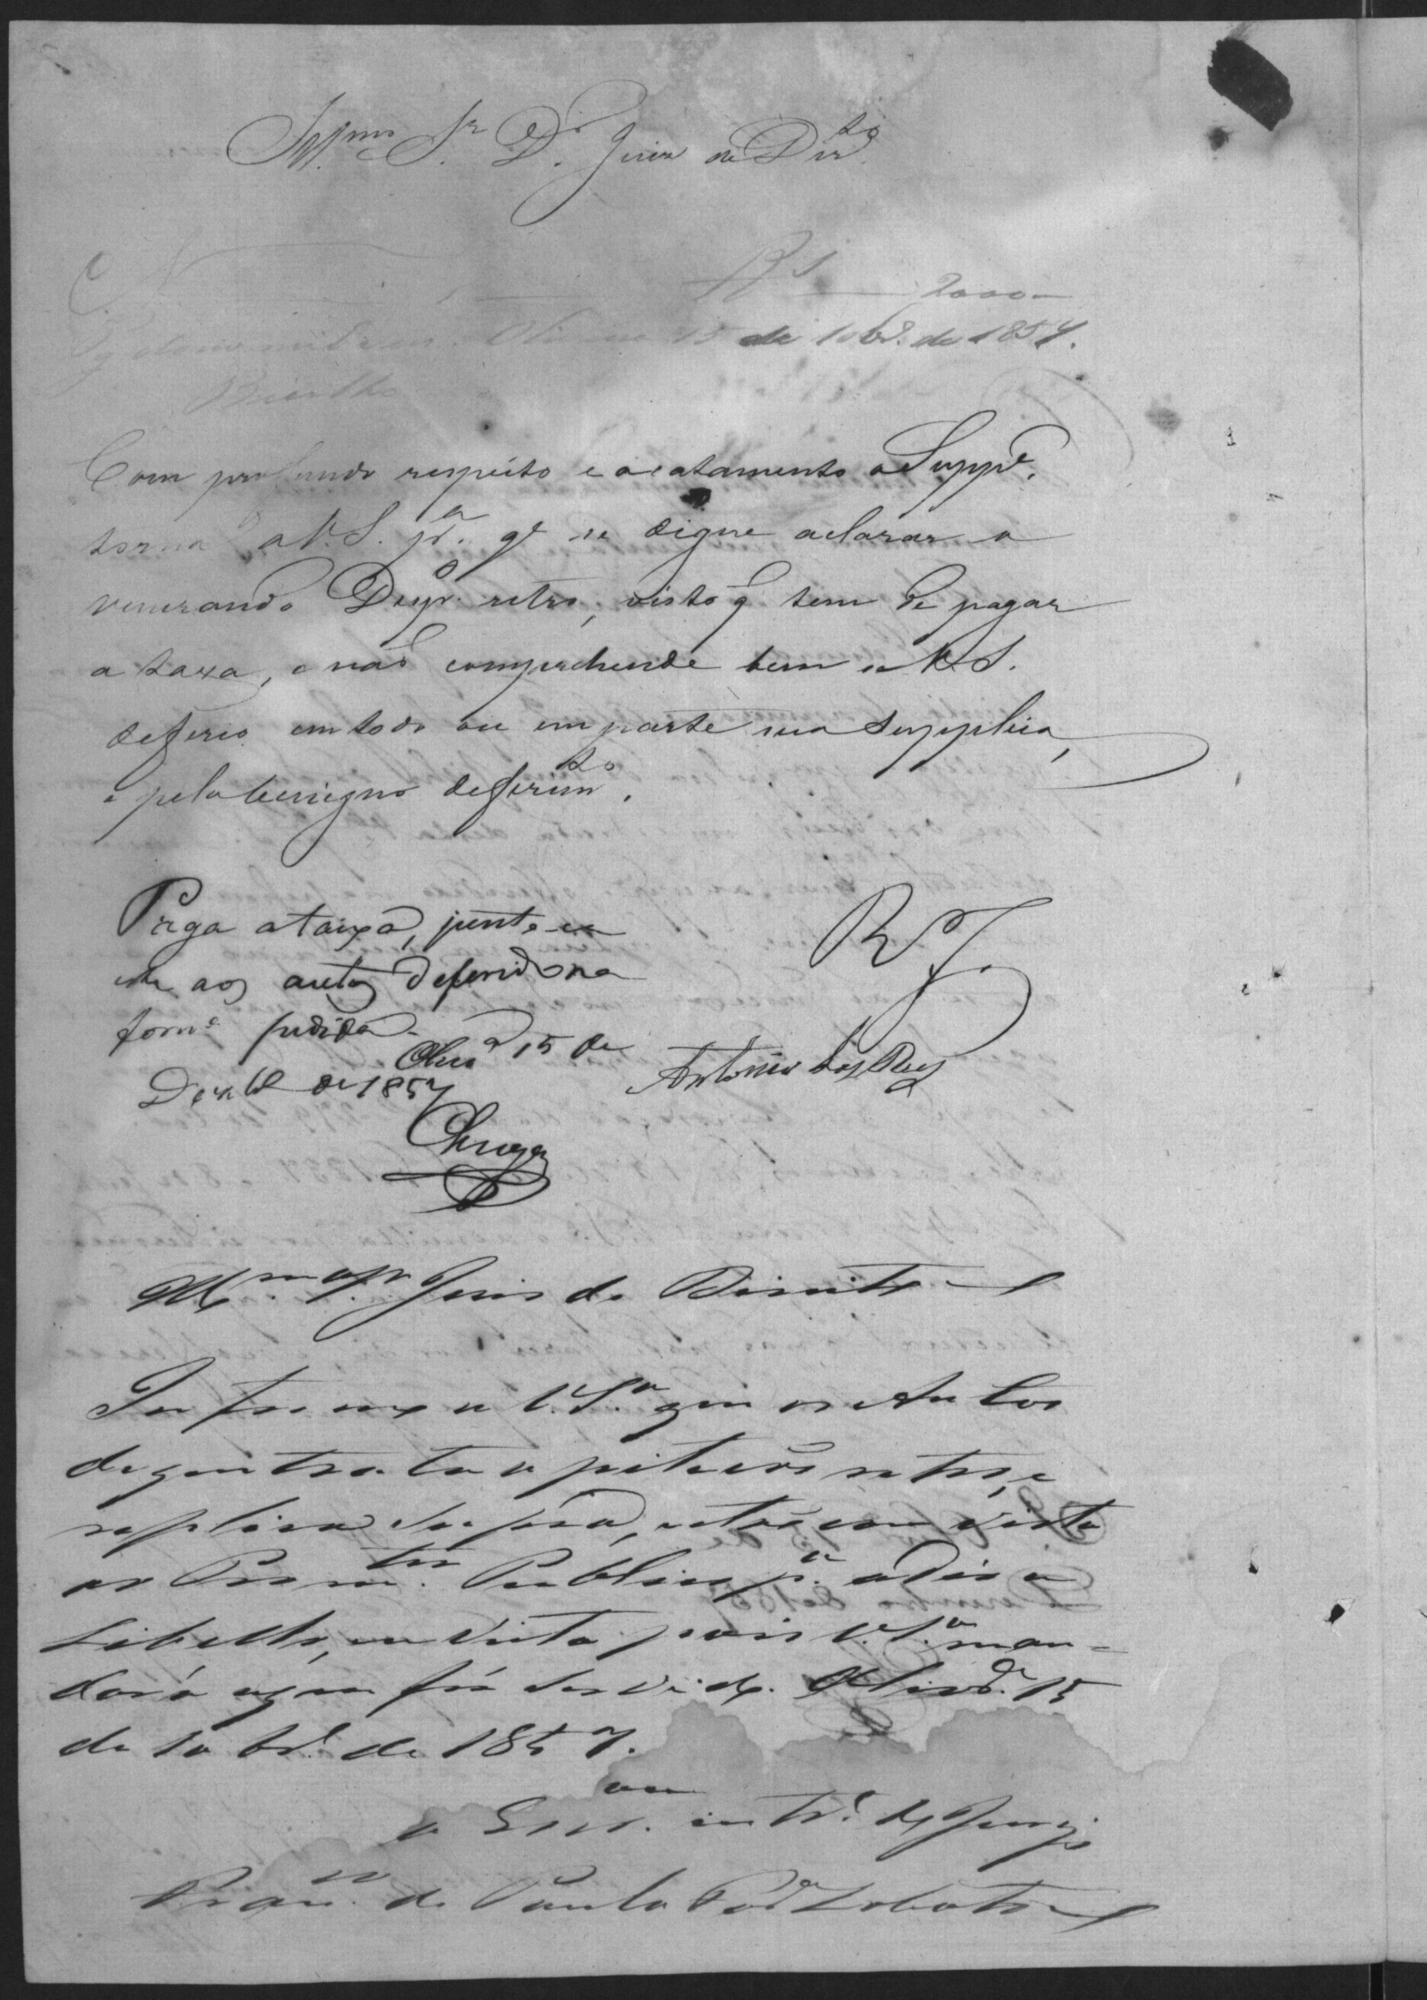 Illmo Sr. Dr. Juiz de Dirto
Rs 2000
15 de 10br. de 1857.
Com profundo respeito e acatamento o Suppe.
torna a V. S. pa. qe se digne aclarar o
venerando Desp. retro, visto q tem de pagar
a taxa, e não comprehende bem se V. S.
deferio em todo ou em parte sua supplica,
e pelo benigno deferimto.
Paga a taixa, junte-se
este aos autos deferido na
forma pedida.
Olivra 15 de
Dezbro de 1857
R J.
Antonio dos Reis
Illmo. Sr. Juis de Direito
Informo a V. Sa. que os Autos
de que trata a petição retro, e
replica supra, estão com vista
ao Promtor. Publico pa. adir o
Libello, em vista pois V. Sa. man-
dará o que for servido. Olivra. 15
de 10br. de 1857.
o Escr. intro. do Jury
Franco. de Paula Lobato